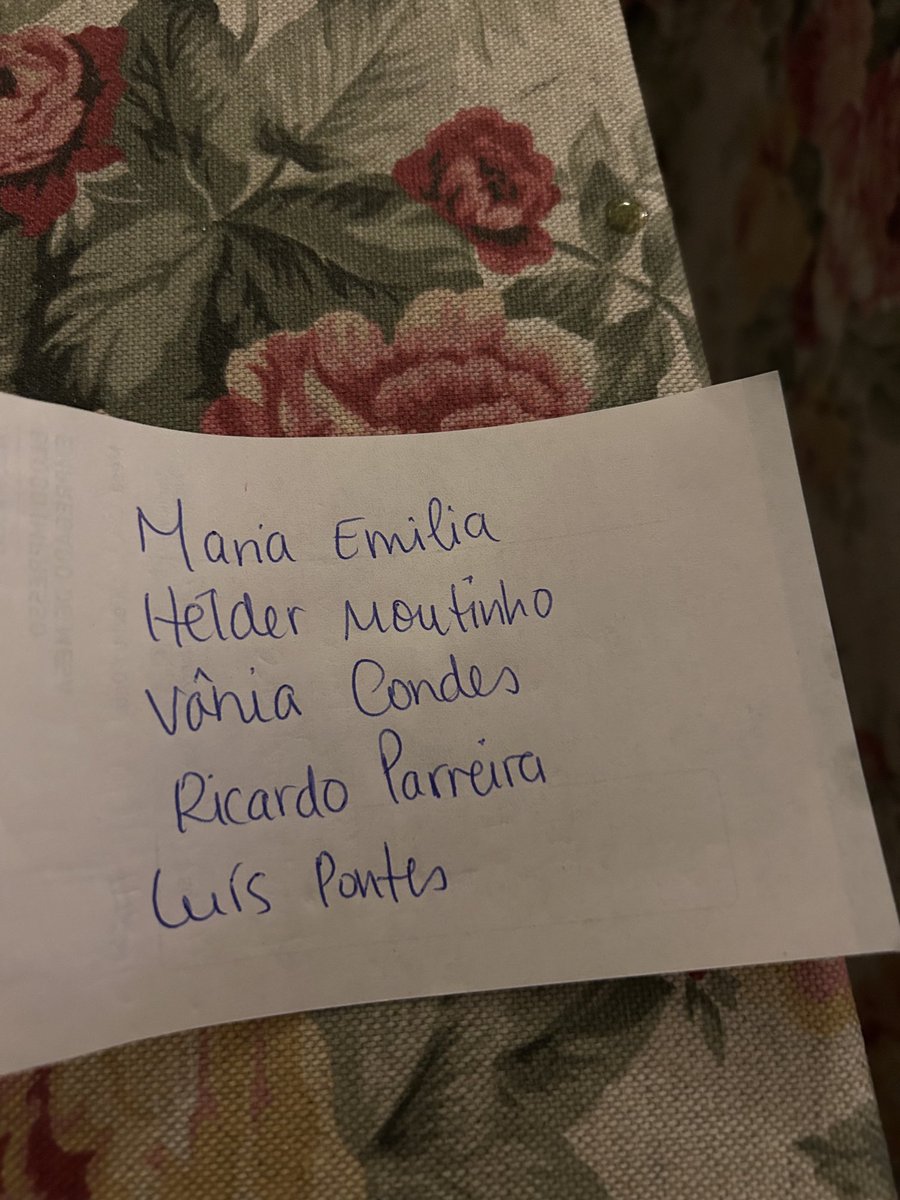 Maria Emilia
Hélder Moutinho
Vânia Condes
Ricardo Parreira
Luís Pontes